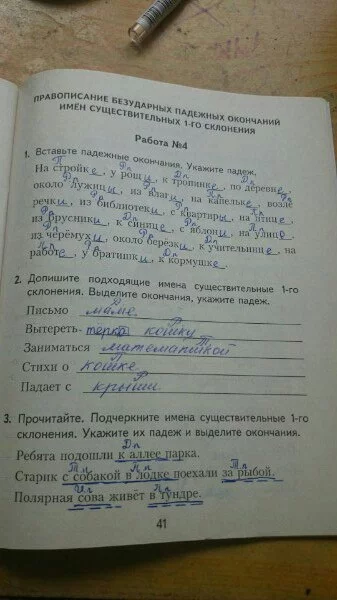 ПРАВОПИСАНИЕ БЕЗУДАРНЫХ ПАДЕЖНЫХ ОКОНЧАНИЙ
ИМЁН СУЩЕСТВИТЕЛЬНЫХ 1-ГО СКЛОНЕНИЯ
Работа №4
1. Вставьте падежные окончания. Укажите падеж.
На стройке, у рощи, к тропинке, по деревне,
около лужицы, из влаги, на капельке, возле
речки, из библиотеки, с квартиры, на птице,
из брусники, к синице, с яблони, на улице,
из черёмухи, около берёзки, к учительнице, на
работе, у братишки, к кормушке.
2. Допишите подходящие имена существительные 1-го
склонения. Выделите окончания, укажите падеж.
Письмо маме.
Вытереть кошку
Заниматься математикой
Стихи о кошке.
Падает с крыши.
3. Прочитайте. Подчеркните имена существительные 1-го
склонения. Укажите их падеж и выделите окончания.
Дп
Ребята подошли к аллее парка.
Тп Пп Тп
Старик с собакой в лодке поехали за рыбой.
Ип Пп
Полярная сова живёт в тундре.
41